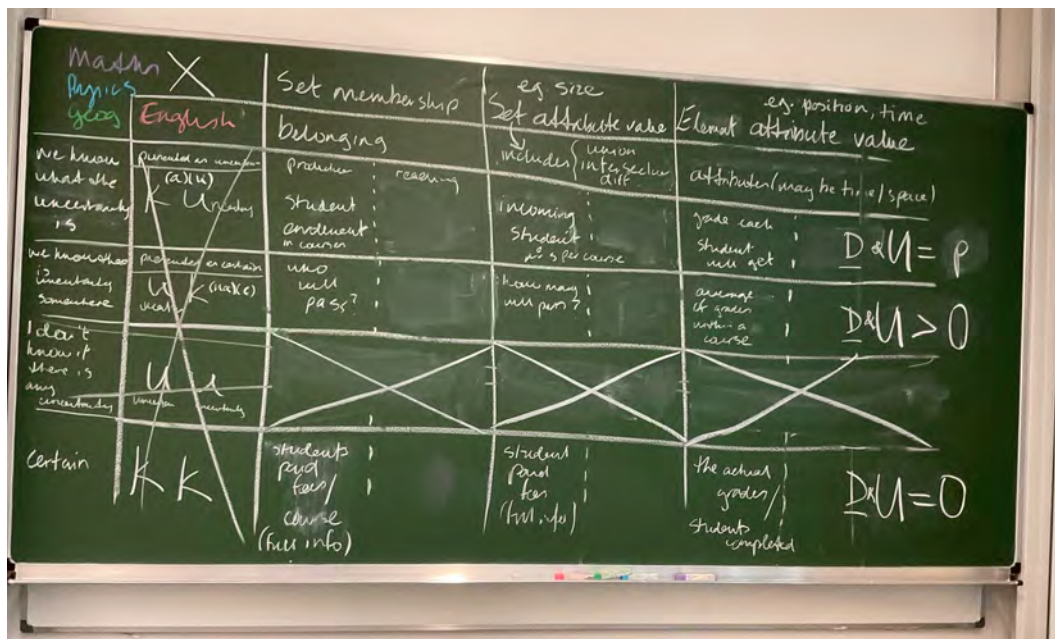 Maths X
Physics
geog
English
Set membership
belonging
eg size
Set attribute value
includes { union
intersection
diff.
eg. position, time
Element attribute value
attributes (may be time / space)
we know
what the
uncertainty
is
presented as
(a)(u)
K U
production
reaching
student
enrolment
in courses
incoming
student
per course
grade each
student
will get
D & U = p
we know there
is
uncertainty
somewhere
presented as certain
U K
who
will
pass?
how many
will pass?
average
of grades
within a
course
D & U > 0
I don't
know if
there is
any
uncertainty
U u
uncertainty
Certain
K K
students
paid
fees/
course
(full info)
student
paid
fees
(full info)
the actual
grades /
students
completed
D & U = 0